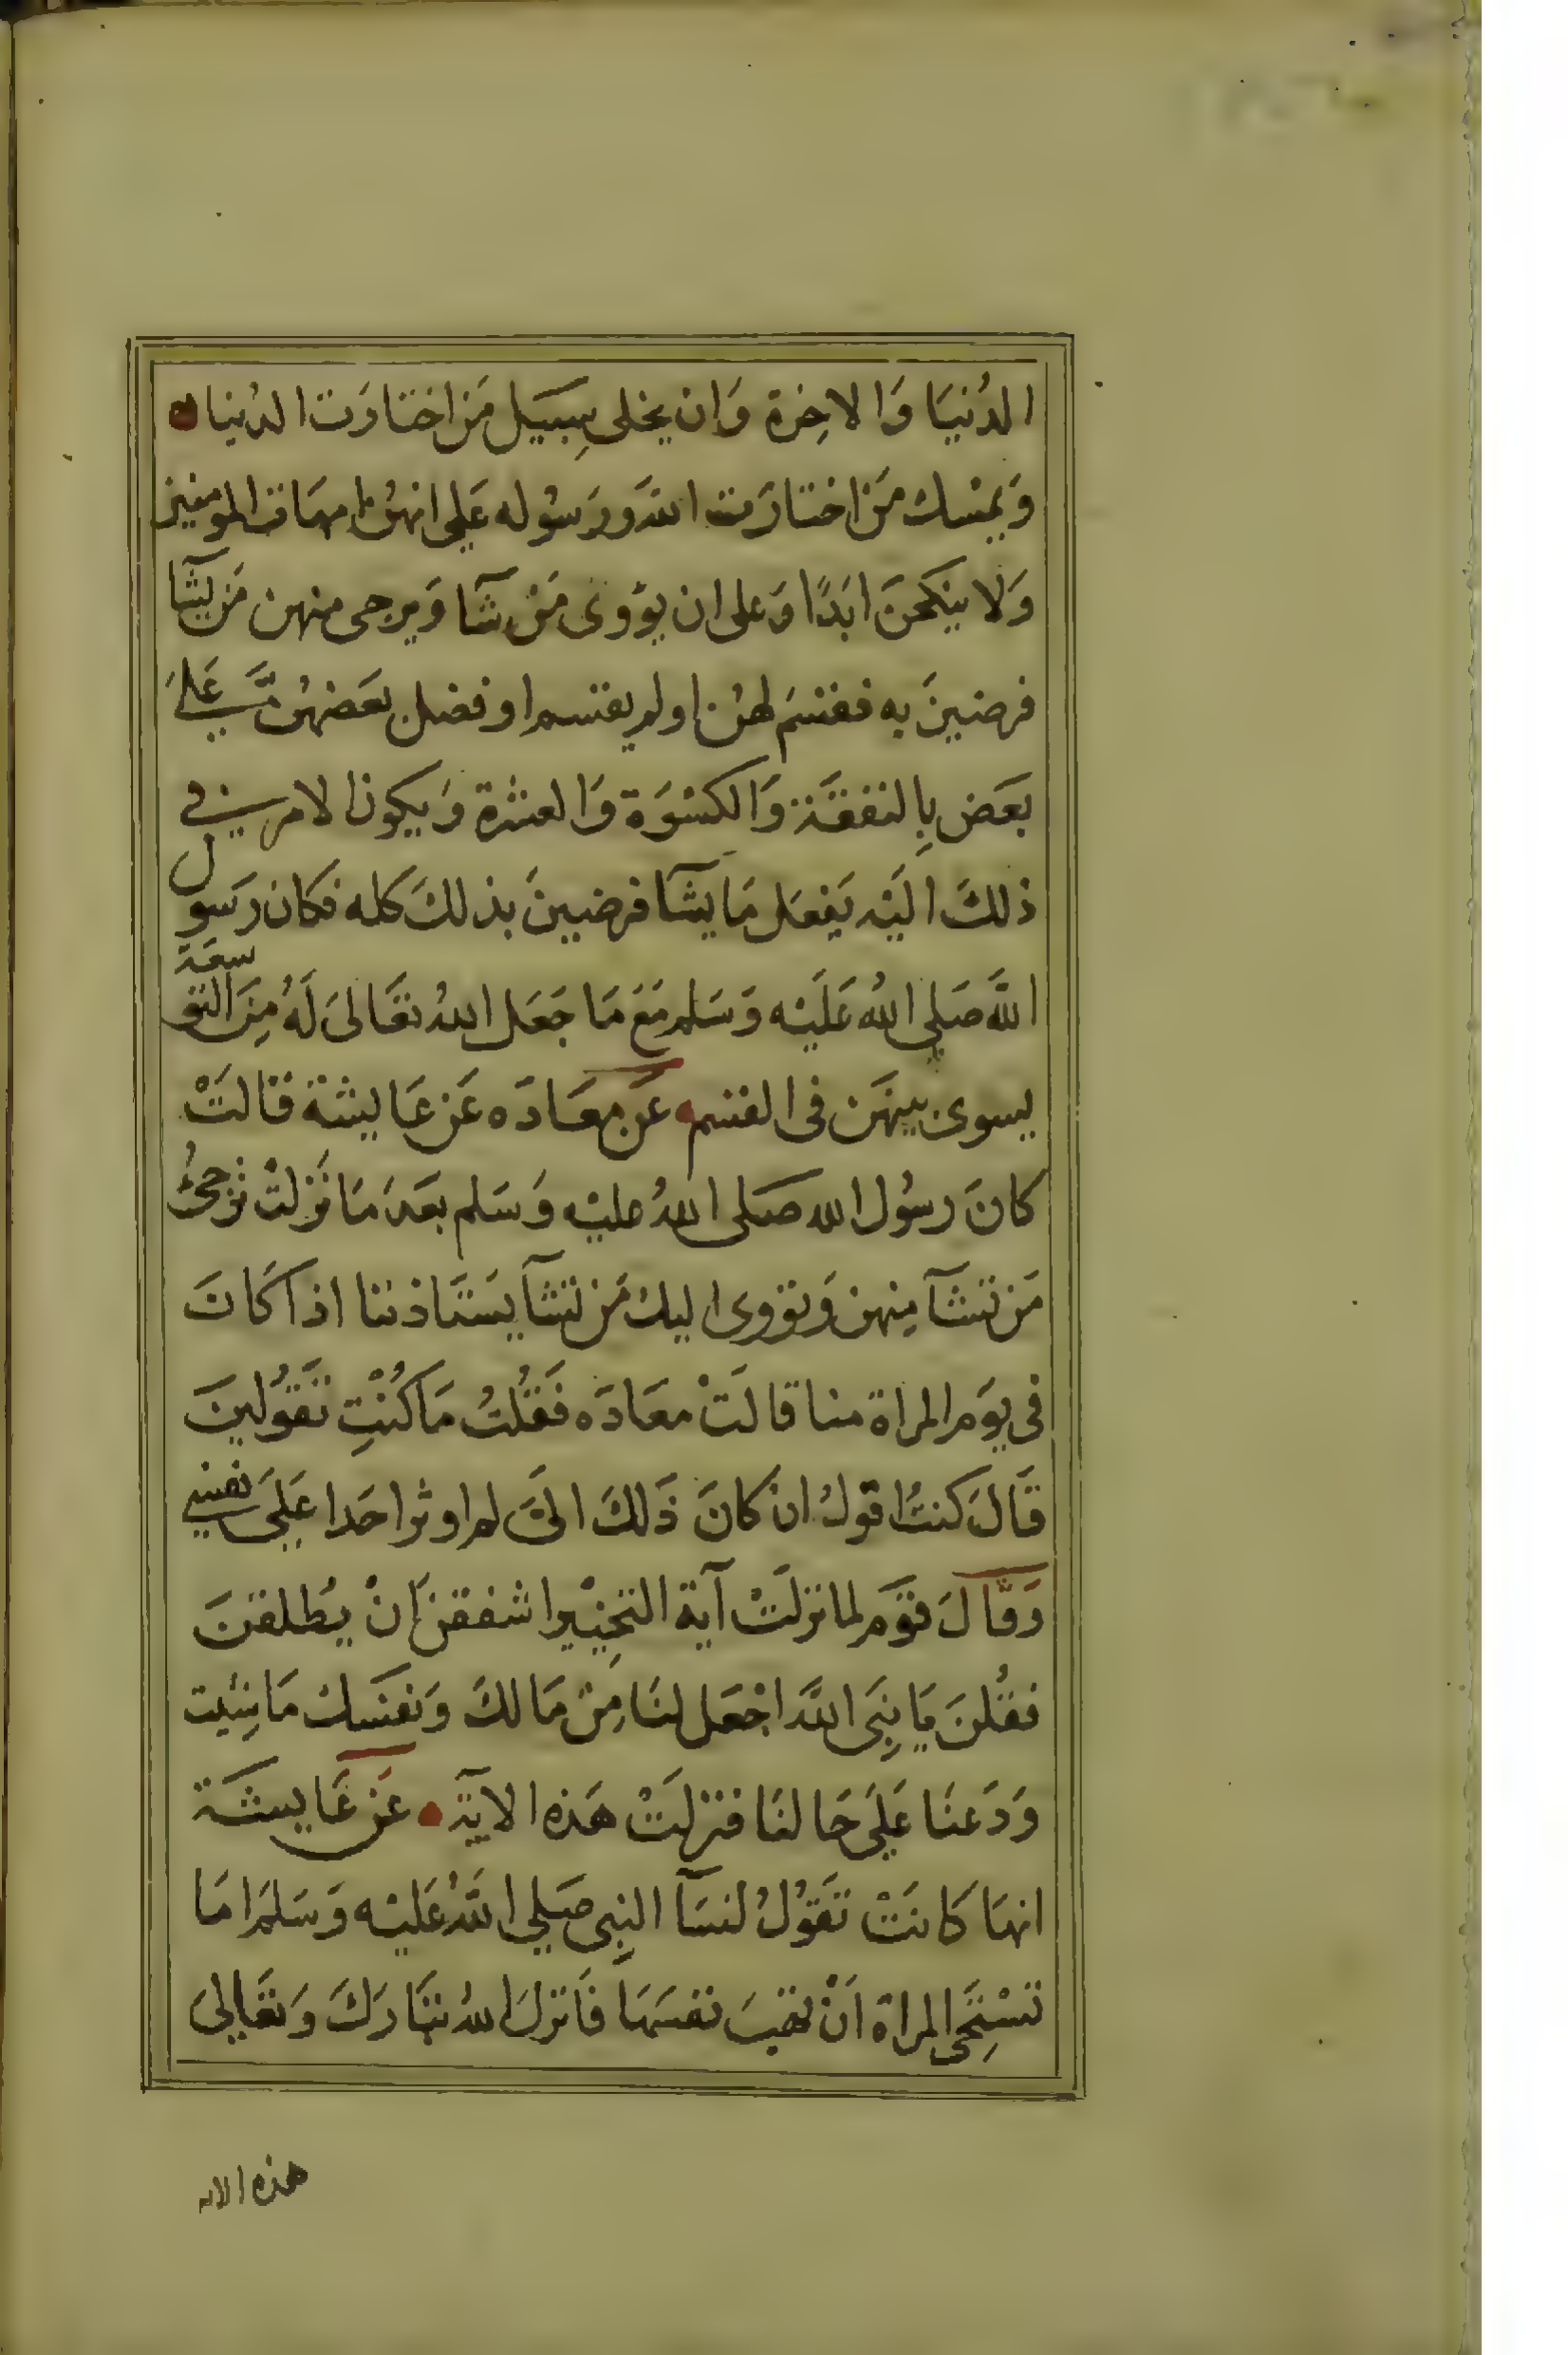 الدُنيَا وَالاخِرة وَان يخلى سِبيَل مَن اختاوَت الدُنيا
وَيمْسك مَن اختارَت اللهَ وَرَسُوله عَلى انهنُ امهَات المومنين
وَلا ينكحنَ ابَدًا وَعلى ان يؤوى مَنْ شآ وَيرجى منهن مَن يشآ
فرضينَ به فقسَم لهنُ اولم يقسم او فضل بعَضهُن عَلىَ
بعَض بِالنفقَة وَالكسْوَة وَالعشْرة وَيكون الامر في
ذلكَ اليَه يَفعَل مَا يشآ فرضينَ بذلكَ كله فكان رَسول
اللهَ صَلى اللهُ عَلَيْه وَسَلم مَعَ مَا جَعَل اللهُ تعَالىَ لَهُ مِنَ التوسعَة
يسوى بينهَن فى القسم عَن معَادَه عَن عَايشة قالَتْ
كانَ رسُول الله صَلى اللهُ عليْه وَسَلم بعَدَ مَا نَزلتْ ترجىُ
مَن تشآ مِنهن وَتؤوى اليك مَن تشآ يَستَاذننا اذا كَانَ
فى يوَم المراة منا قالَتْ معَادَه فَقُلتُ مَا كُنْتِ تَقوُلينَ
قَالَ كنتُ اقولُ ان كانَ ذَلكَ الىَ لم اوثر احَدا عَلىَ نفسي
وَقَالَ قوَم لما نزلَتْ آية التخِيْير اشفقنَ انْ يُطلقنَ
فقُلنَ يَا نِبَى اللهَ اجْعَل لنَا مِنْ مَالكَ وَنفسَك مَا شِئيت
وَدَعنَا عَلىَ حَالنَا فنزلَتْ هَذه الايَة عَن عَايشَة
انهَا كَانَتْ تَقوُلُ لنسَآ النِبى صَلى اللهُ عَليْه وَسَلمَ امَا
تسْتِحَى المراة اَنْ تهبَ نفسَهَا فَانزلَ اللهُ تبَارَكَ وَتعَالىَ
هذه الايه